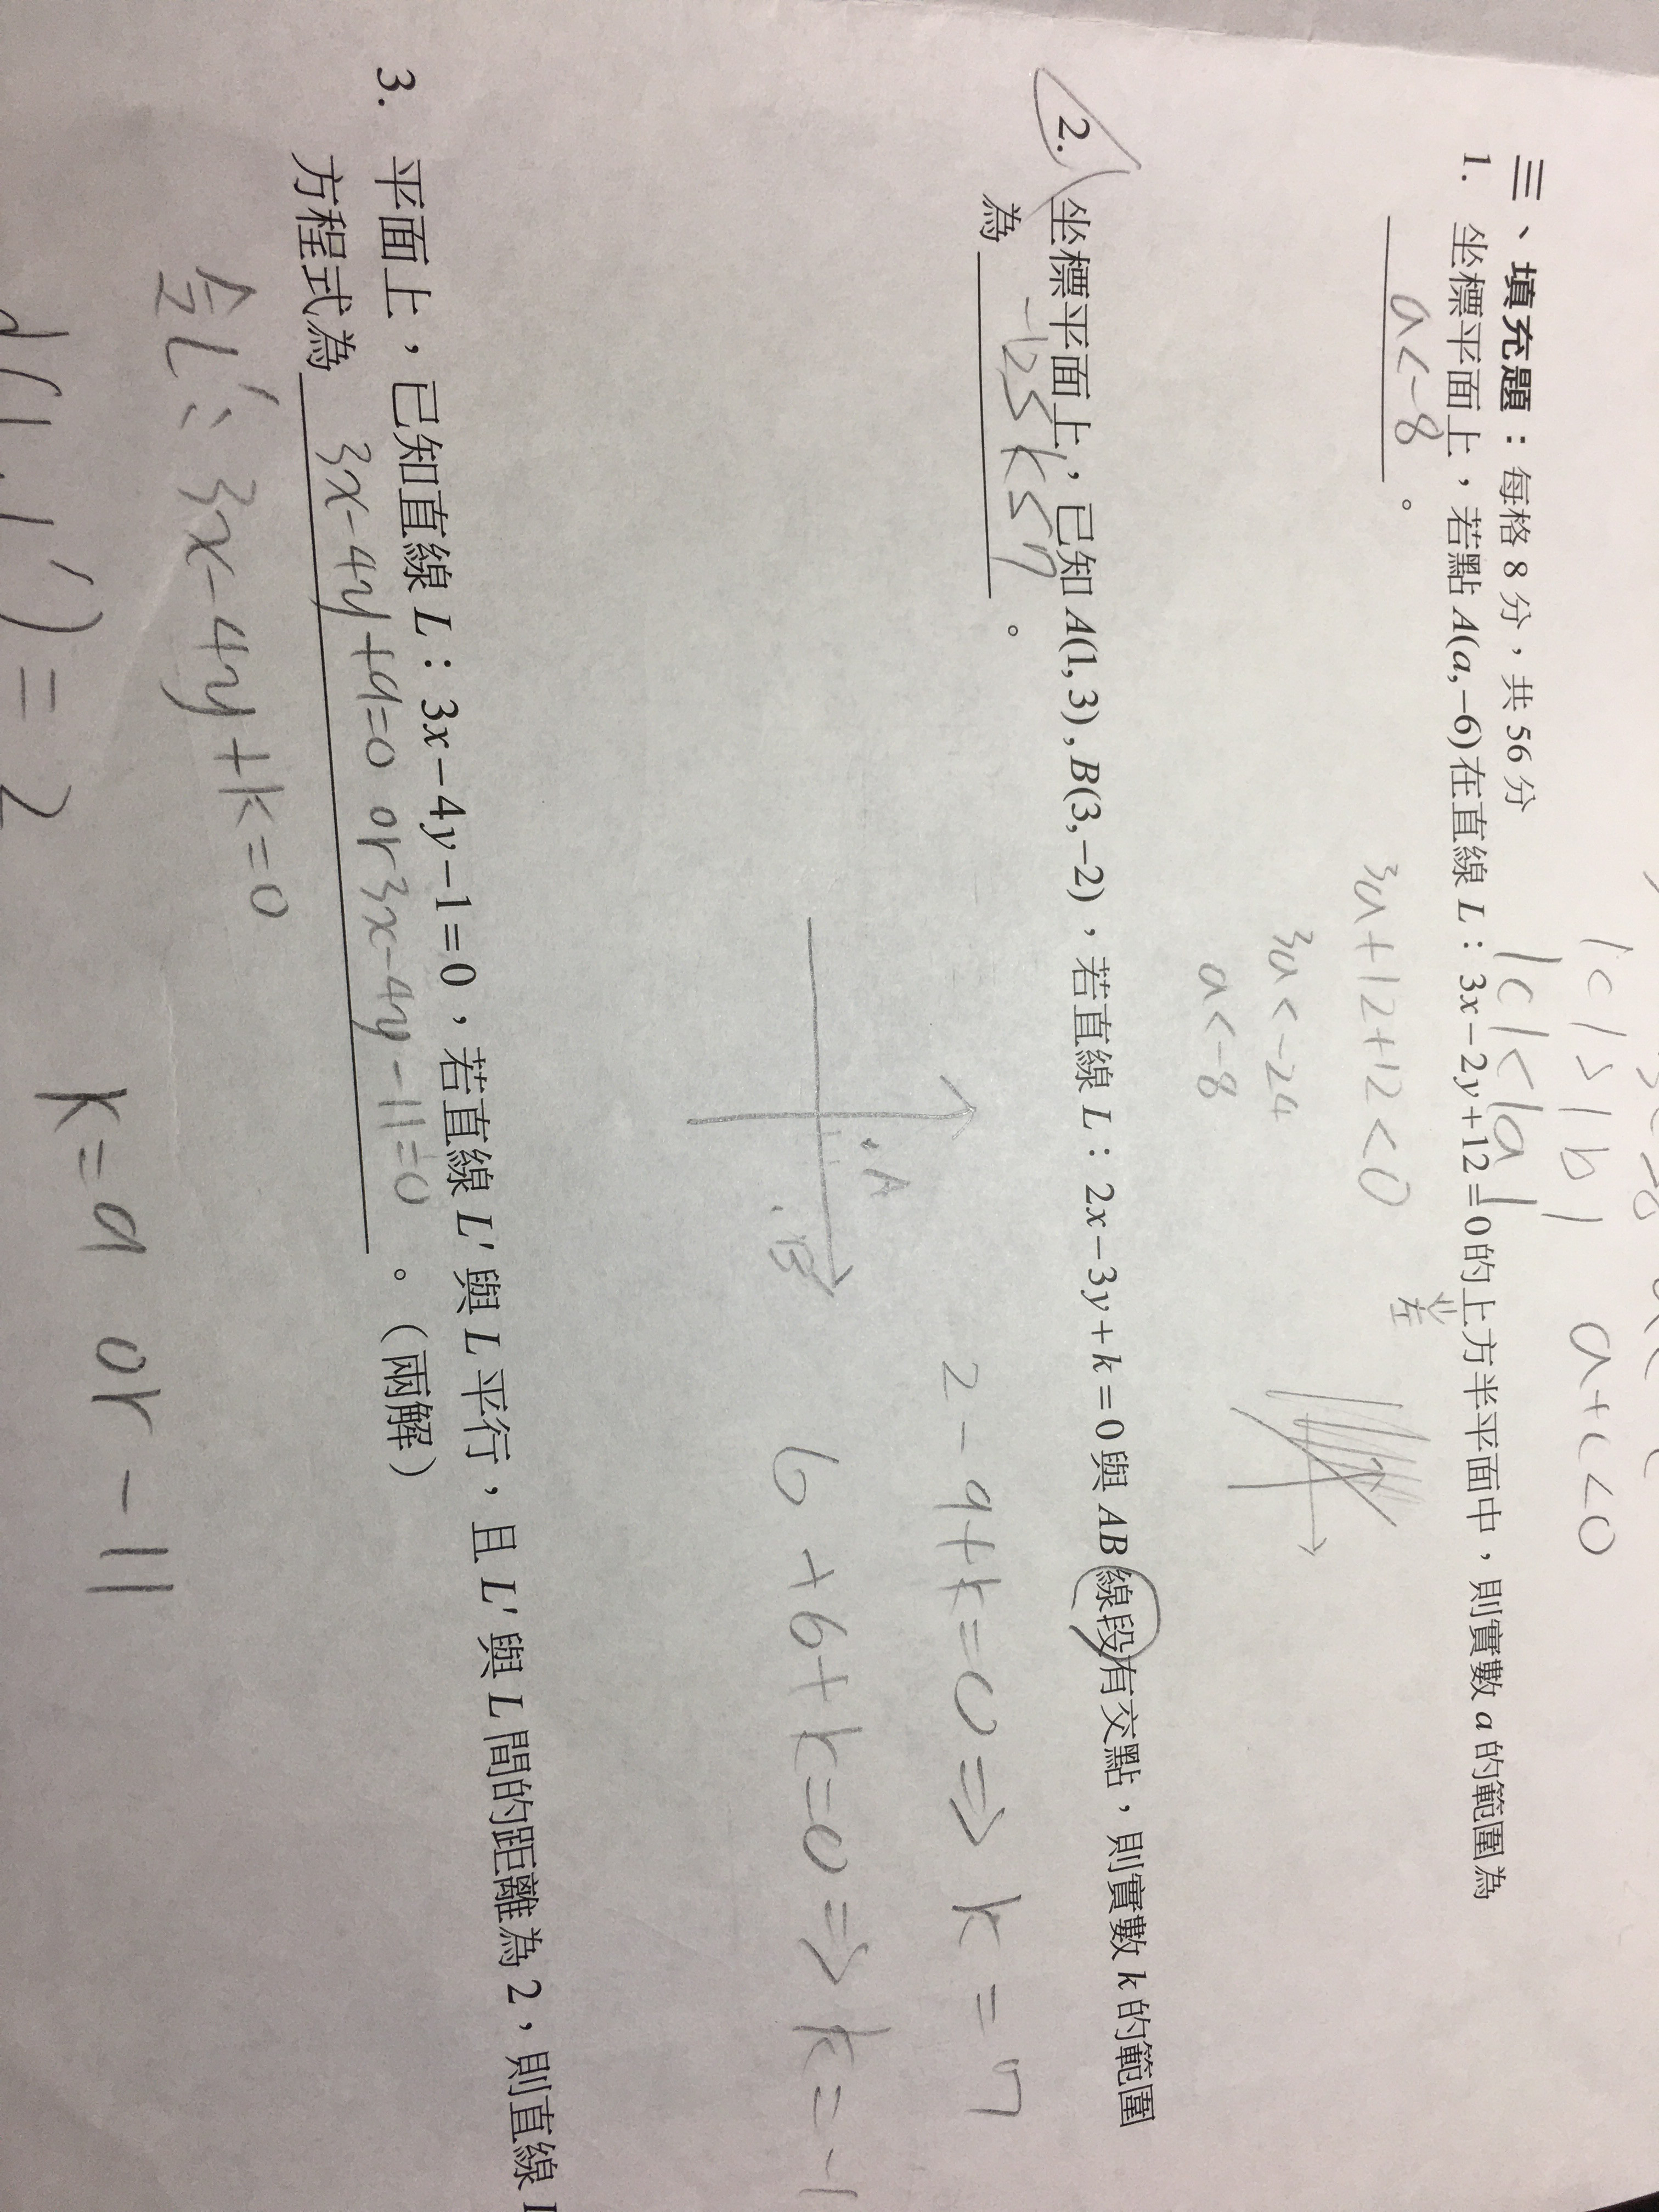 |c|>|b| a+c<0
|c|<|a|
三、填充題：每格 8 分，共 56 分
1. 坐標平面上，若點 A(a,−6) 在直線 L：3x−2y+12=0 的上方半平面中，則實數 a 的範圍為
a<-8 。
左
3a+12+12<0
3a<-24
a<-8
2. 坐標平面上，已知 A(1,3), B(3,−2)，若直線 L：2x−3y+k=0 與 AB 線段有交點，則實數 k 的範圍
為 -12≤k≤7 。
2-9+k=0⇒k=7
.A
.B
6+6+k=0⇒k=-1
3. 平面上，已知直線 L：3x−4y−1=0，若直線 L' 與 L 平行，且 L' 與 L 間的距離為 2，則直線 L
方程式為 3x-4y+9=0 or 3x-4y-11=0 。（兩解）
令L':3x-4y+k=0
k=9 or -11
=2